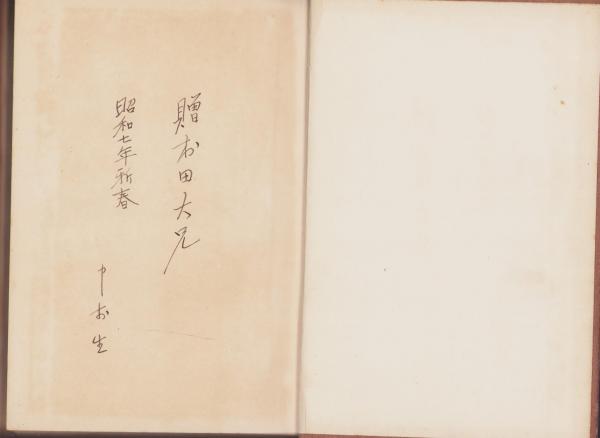 贈村田大兄
昭和七年新春
中村生